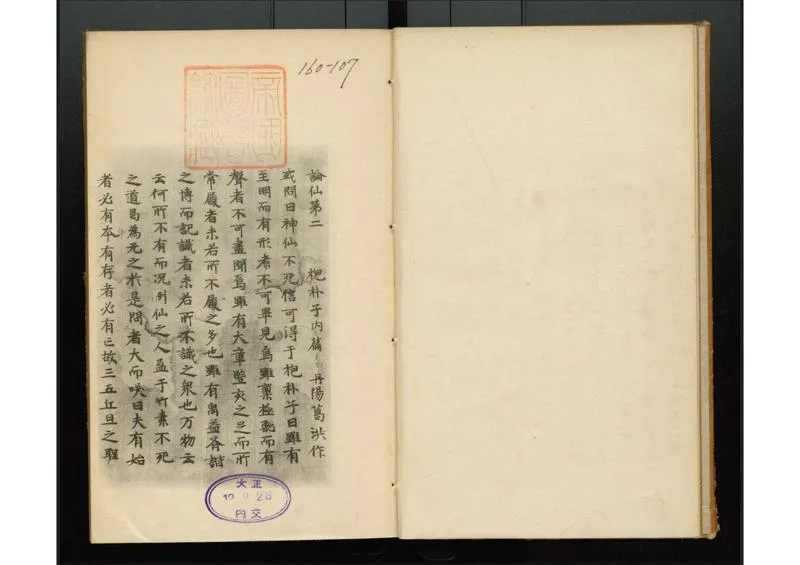 160-107
論仙第二 抱朴子内篇 丹陽葛洪作
或問曰神仙不死信可得于抱朴子曰雖有
至明而有形者不可畢見焉雖稟極聰而有
聲者不可盡聞焉雖有大章豎亥之足而所
常履者未若所不履之多也雖有禹益齊諧
之博而記識者未若所不識之衆也万物云
云何所不有而况列仙之人盈于竹素不死
之道曷為无之於是問者大而咲曰夫有始
者必有卒有存者必有亡故三五丘旦之聖
大正
内交